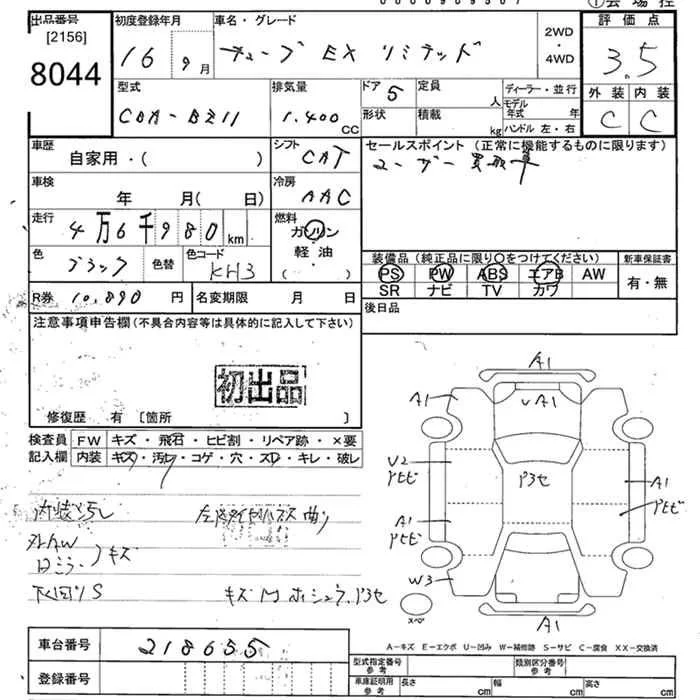 ①会場控
出品番号
[2156]
8044
初度登録年月
16 9月
車名・グレード
キューブ EX リミテッド
2WD
・
4WD
評価点
3.5
型式
CBA-BZ11
排気量
1,400 CC
ドア 5
定員 人
形状
積載 kg
ディーラー・並行
モデル年式 年
ハンドル 左・右
外装 内装
C C
車歴
自家用・( )
シフト
CAT
セールスポイント (正常に機能するものに限ります)
ユーザー買取車
車検
年 月(日)
冷房
AAC
走行
4万6千980km
燃料
ガソリン
軽油
( )
色
ブラック
色替
色コード
KH3
装備品(純正品に限り〇をつけてください)
新車保証書
PS PW ABS エアB AW
SR ナビ TV カワ
有・無
R券 10,890 円
名変期限 月 日
後日品
注意事項申告欄(不具合内容等は具体的に記入して下さい)
初出品
修復歴 有 〔箇所 〕
検査員記入欄
FW キズ・飛石・ヒビ割・リペア跡・×要
内装 キズ・汚レ・コゲ・穴・スレ・キレ・破レ
内装汚レ
外AW
キズ
下回りS
A1
A1
VA1
U2
P3セ
A1
A1
W3
スペ
A1
A-キズ E-エクボ U-凹み W-補修跡 S-サビ C-腐食 XX-交換済
車台番号
218655
登録番号
型式指定番号 参考
類別区分番号 参考
車庫証明用 参考
長さ cm
幅 cm
高さ cm